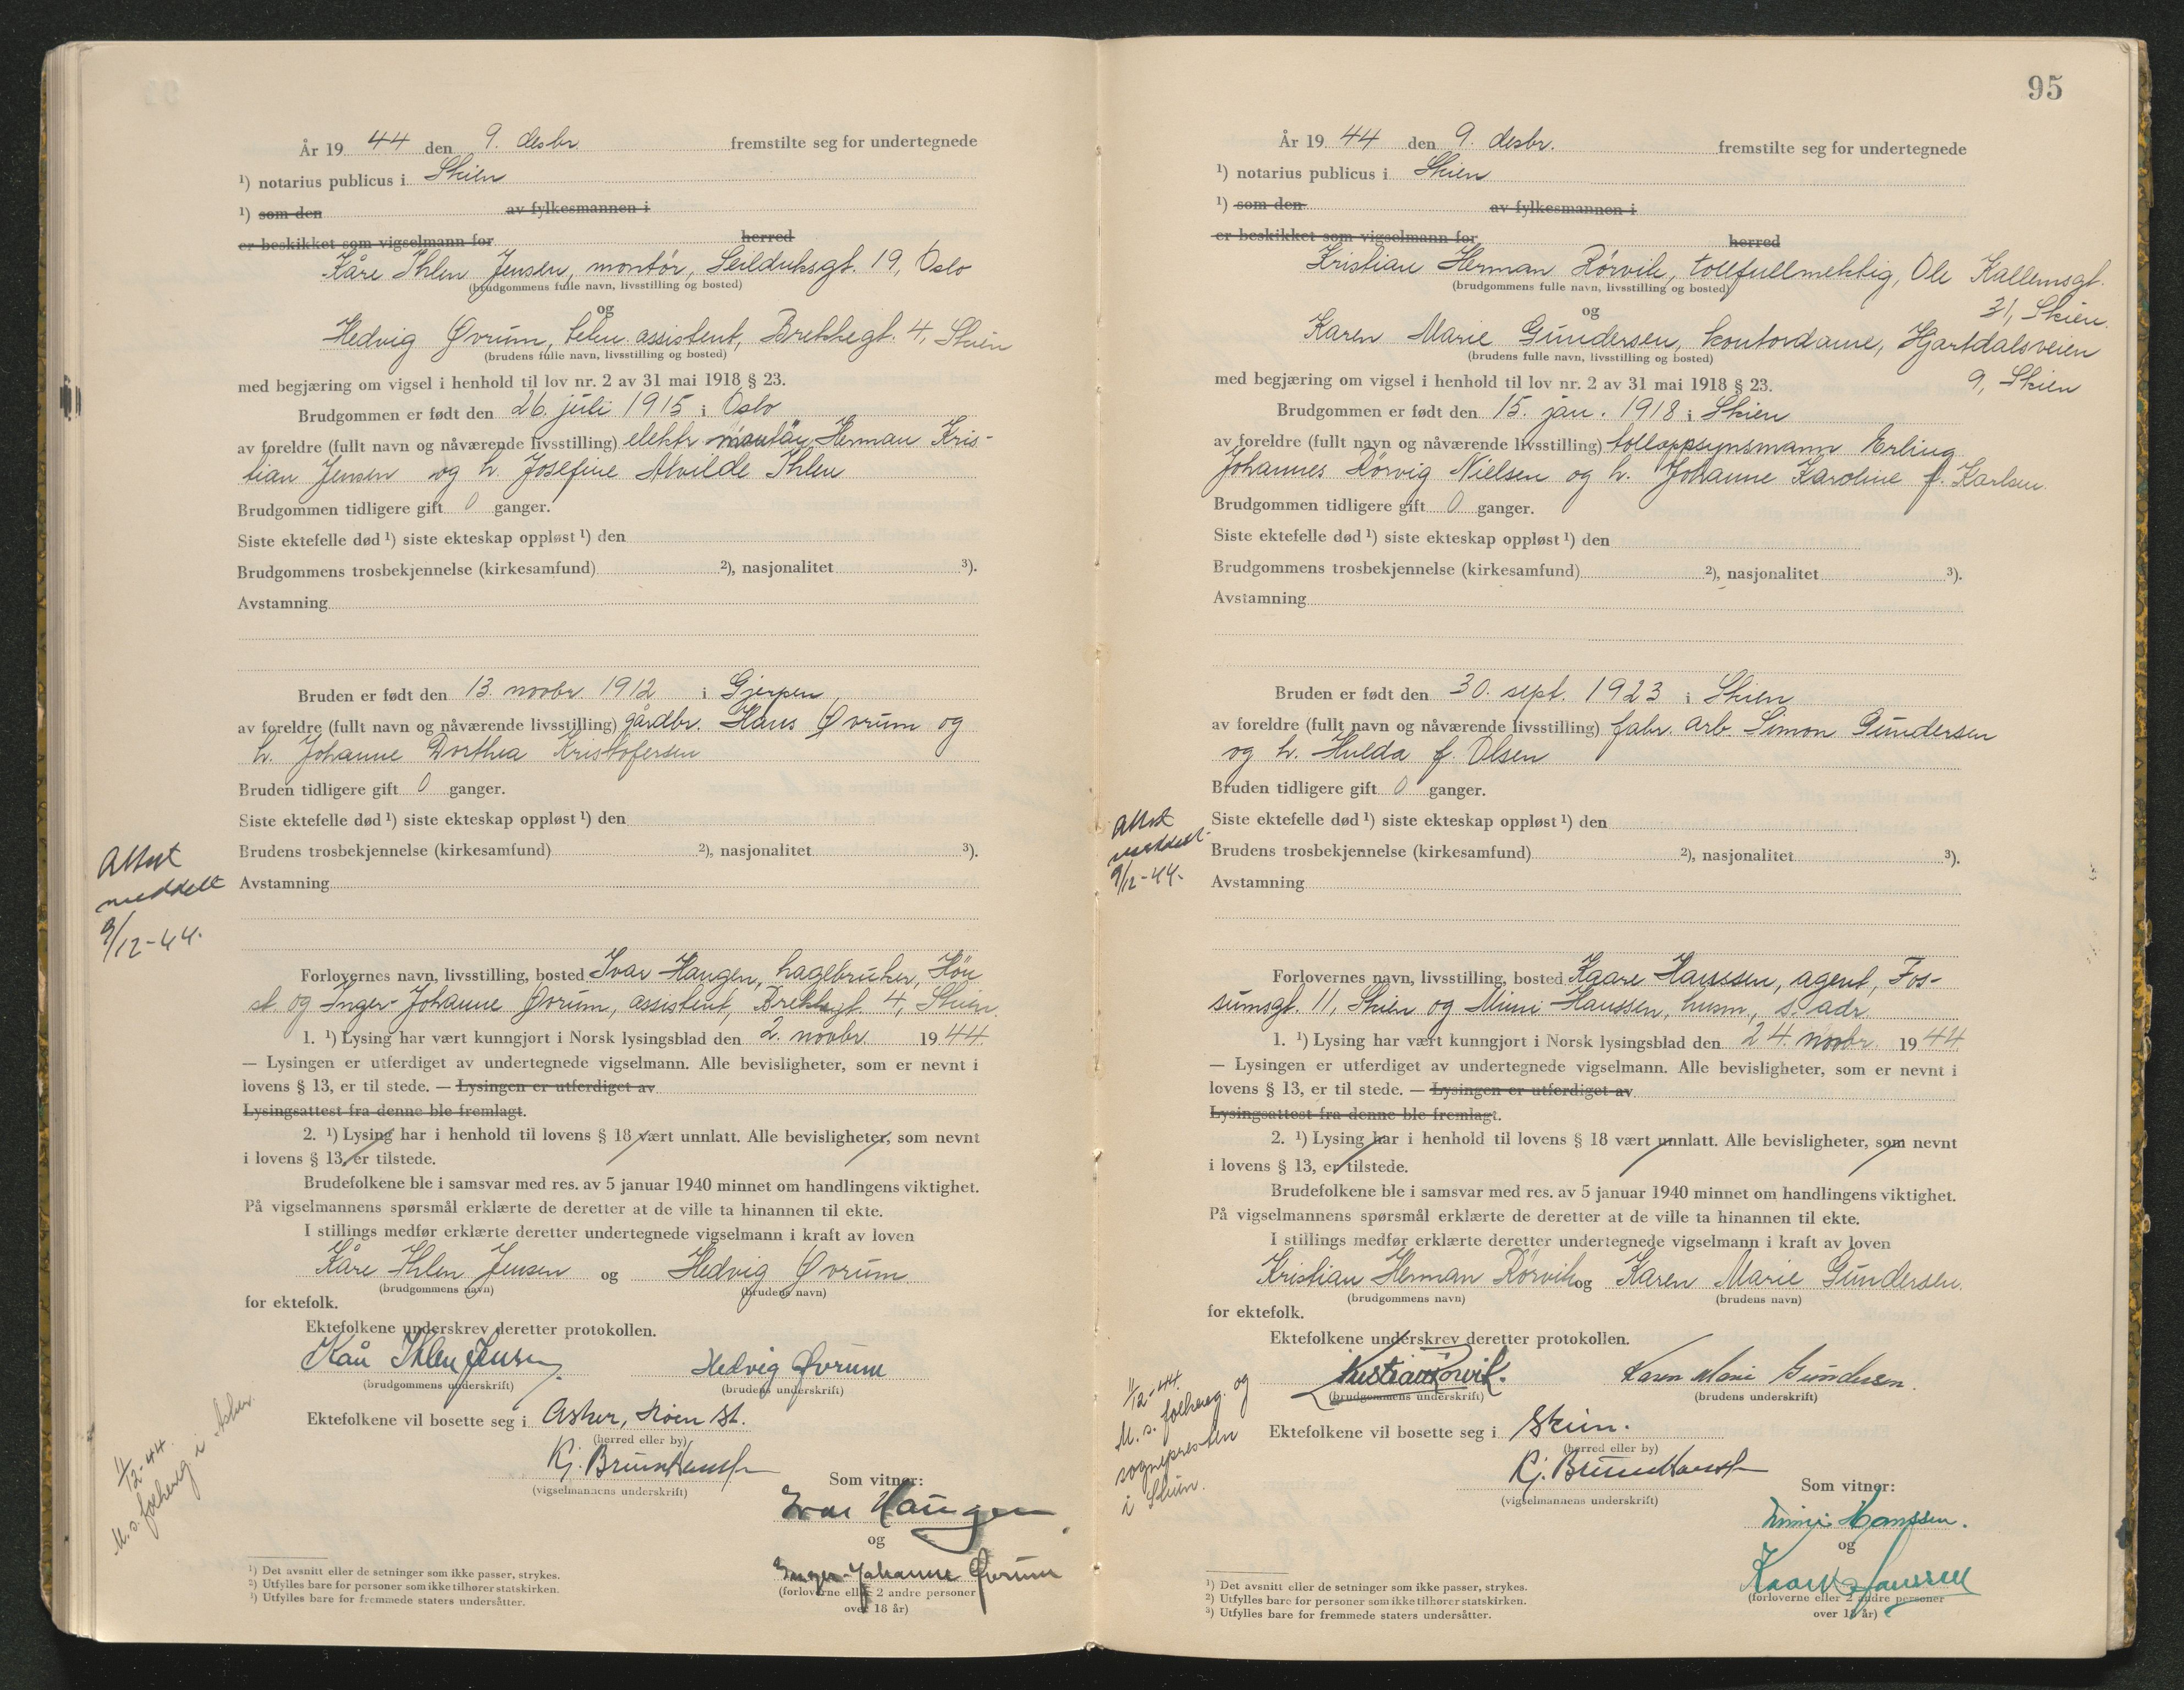 År 19 44 den 9. desbr. fremstilte seg for undertegnede
¹) notarius publicus i Skien
¹) som den av fylkesmannen i
er beskikket som vigselmann for herred
Kåre Ihlen Jensen, montör, Seilduksgt. 19, Oslo
(brudgommens fulle navn, livsstilling og bosted)
og
Hedvig Øvrum, assistent, Brekkegt. 4, Skien
(brudens fulle navn, livsstilling og bosted)
med begjæring om vigsel i henhold til lov nr. 2 av 31 mai 1918 § 23.
Brudgommen er født den 26. juli 1915 i Oslo
av foreldre (fullt navn og nåværende livsstilling) elektr. montör Herman Kris-
tian Jensen og h. Josefine Alvilde Ihlen
Brudgommen tidligere gift 0 ganger.
Siste ektefelle død ¹) siste ekteskap oppløst ¹) den
Brudgommens trosbekjennelse (kirkesamfund) ²), nasjonalitet ³).
Avstamning
Bruden er født den 13. novbr 1912 i Gjerpen
av foreldre (fullt navn og nåværende livsstilling) gårdbr. Hans Øvrum og
h. Johanne Dorthea Kristofersen
Bruden tidligere gift 0 ganger.
Siste ektefelle død ¹) siste ekteskap oppløst ¹) den
Brudens trosbekjennelse (kirkesamfund) ²), nasjonalitet ³).
Avstamning
Attest
meddelt
9/12-44.
Forlovernes navn, livsstilling, bosted Ivar Haugen, hagebruker, Hön
st. og Inger-Johanne Øvrum, assistent, Brekkegt. 4, Skien.
1. ¹) Lysing har vært kunngjort i Norsk lysingsblad den 2. novbr. 1944
— Lysingen er utferdiget av undertegnede vigselmann. Alle bevisligheter, som er nevnt i
lovens § 13, er til stede. — Lysingen er utferdiget av
Lysingsattest fra denne ble fremlagt.
2. ¹) Lysing har i henhold til lovens § 18 vært unnlatt. Alle bevisligheter, som nevnt
i lovens § 13, er tilstede.
Brudefolkene ble i samsvar med res. av 5 januar 1940 minnet om handlingens viktighet.
På vigselmannens spørsmål erklærte de deretter at de ville ta hinannen til ekte.
I stillings medfør erklærte deretter undertegnede vigselmann i kraft av loven
Kåre Ihlen Jensen og Hedvig Øvrum
(brudgommens navn) (brudens navn)
for ektefolk.
Ektefolkene underskrev deretter protokollen.
Kåre Ihlen Jensen Hedvig Øvrum
(brudgommens underskrift) (brudens underskrift)
Ektefolkene vil bosette seg i Asker, Høn st.
(herred eller by)
(vigselmannens underskrift)
11/12-44.
M. s. folkereg i Asker.
Som vitner:
Ivar Haugen
og
Inger-Johanne Øvrum
(forloverne eller 2 andre personer
over 18 år)
¹) Det avsnitt eller de setninger som ikke passer, strykes.
²) Utfylles bare for personer som ikke tilhører statskirken.
³) Utfylles bare for fremmede staters undersåtter.
95
År 19 44 den 9. desbr. fremstilte seg for undertegnede
¹) notarius publicus i Skien
¹) som den av fylkesmannen i
er beskikket som vigselmann for herred
Kristian Herman Rörvik, tollfullmektig, Ole Kallemsgt.
31, Skien.
(brudgommens fulle navn, livsstilling og bosted)
og
Karen Marie Gundersen, kontordame, Hjartdalsveien
9, Skien
(brudens fulle navn, livsstilling og bosted)
med begjæring om vigsel i henhold til lov nr. 2 av 31 mai 1918 § 23.
Brudgommen er født den 15. jan. 1918 i Skien
av foreldre (fullt navn og nåværende livsstilling) tolloppsynsmann Erling
Johannes Rörvig Nielsen og h. Johanne Karoline f. Karlsen.
Brudgommen tidligere gift 0 ganger.
Siste ektefelle død ¹) siste ekteskap oppløst ¹) den
Brudgommens trosbekjennelse (kirkesamfund) ²), nasjonalitet ³).
Avstamning
Bruden er født den 30. sept. 1923 i Skien
av foreldre (fullt navn og nåværende livsstilling) fabr. arb. Simon Gundersen
og h. Hulda f. Olsen
Bruden tidligere gift 0 ganger.
Siste ektefelle død ¹) siste ekteskap oppløst ¹) den
Brudens trosbekjennelse (kirkesamfund) ²), nasjonalitet ³).
Avstamning
Attest
meddelt
9/12-44.
Forlovernes navn, livsstilling, bosted Kaare Hanssen, agent, Fos-
sumsgt. 11, Skien og Mimi Hanssen, husm., s. adr.
1. ¹) Lysing har vært kunngjort i Norsk lysingsblad den 24. novbr. 1944
— Lysingen er utferdiget av undertegnede vigselmann. Alle bevisligheter, som er nevnt i
lovens § 13, er til stede. — Lysingen er utferdiget av
Lysingsattest fra denne ble fremlagt.
2. ¹) Lysing har i henhold til lovens § 18 vært unnlatt. Alle bevisligheter, som nevnt
i lovens § 13, er tilstede.
Brudefolkene ble i samsvar med res. av 5 januar 1940 minnet om handlingens viktighet.
På vigselmannens spørsmål erklærte de deretter at de ville ta hinannen til ekte.
I stillings medfør erklærte deretter undertegnede vigselmann i kraft av loven
Kristian Herman Rörvik og Karen Marie Gundersen.
(brudgommens navn) (brudens navn)
for ektefolk.
Ektefolkene underskrev deretter protokollen.
Kristian Rörvik. Karen Marie Gundersen.
(brudgommens underskrift) (brudens underskrift)
Ektefolkene vil bosette seg i Skien.
(herred eller by)
(vigselmannens underskrift)
11/12-44.
M. s. folkereg. og
sognepresten
i Skien.
Som vitner:
Mimi Hanssen.
og
Kaare Hanssen
(forloverne eller 2 andre personer
over 18 år)
¹) Det avsnitt eller de setninger som ikke passer, strykes.
²) Utfylles bare for personer som ikke tilhører statskirken.
³) Utfylles bare for fremmede staters undersåtter.